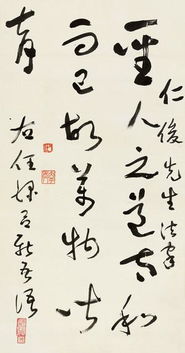 仁俊先生法家
聖人之道太和
而已故萬物皆
育
右任 呂新吾語